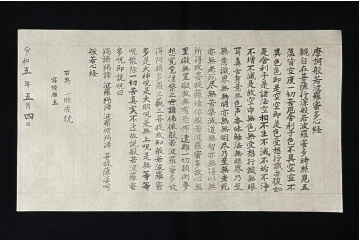 摩訶般若波羅蜜多心経
観自在菩薩行深般若波羅蜜多時照見五
蘊皆空度一切苦厄舎利子色不異空空不
異色色即是空空即是色受想行識亦復如
是舎利子是諸法空相不生不滅不垢不浄
不増不減是故空中無色無受想行識無眼
耳鼻舌身意無色声香味触法無眼界乃至
無意識界無無明亦無無明尽乃至無老死
亦無老死尽無苦集滅道無智亦無得以無
所得故菩提薩埵依般若波羅蜜多故心無
罣礙無罣礙故無有恐怖遠離一切顛倒夢
想究竟涅槃三世諸仏依般若波羅蜜多故
得阿耨多羅三藐三菩提故知般若波羅蜜
多是大神呪是大明呪是無上呪是無等等
呪能除一切苦真実不虚故説般若波羅蜜
多呪即説呪曰
羯諦羯諦 波羅羯諦 波羅僧羯諦 菩提薩婆呵
般若心経
令和五年五月四日